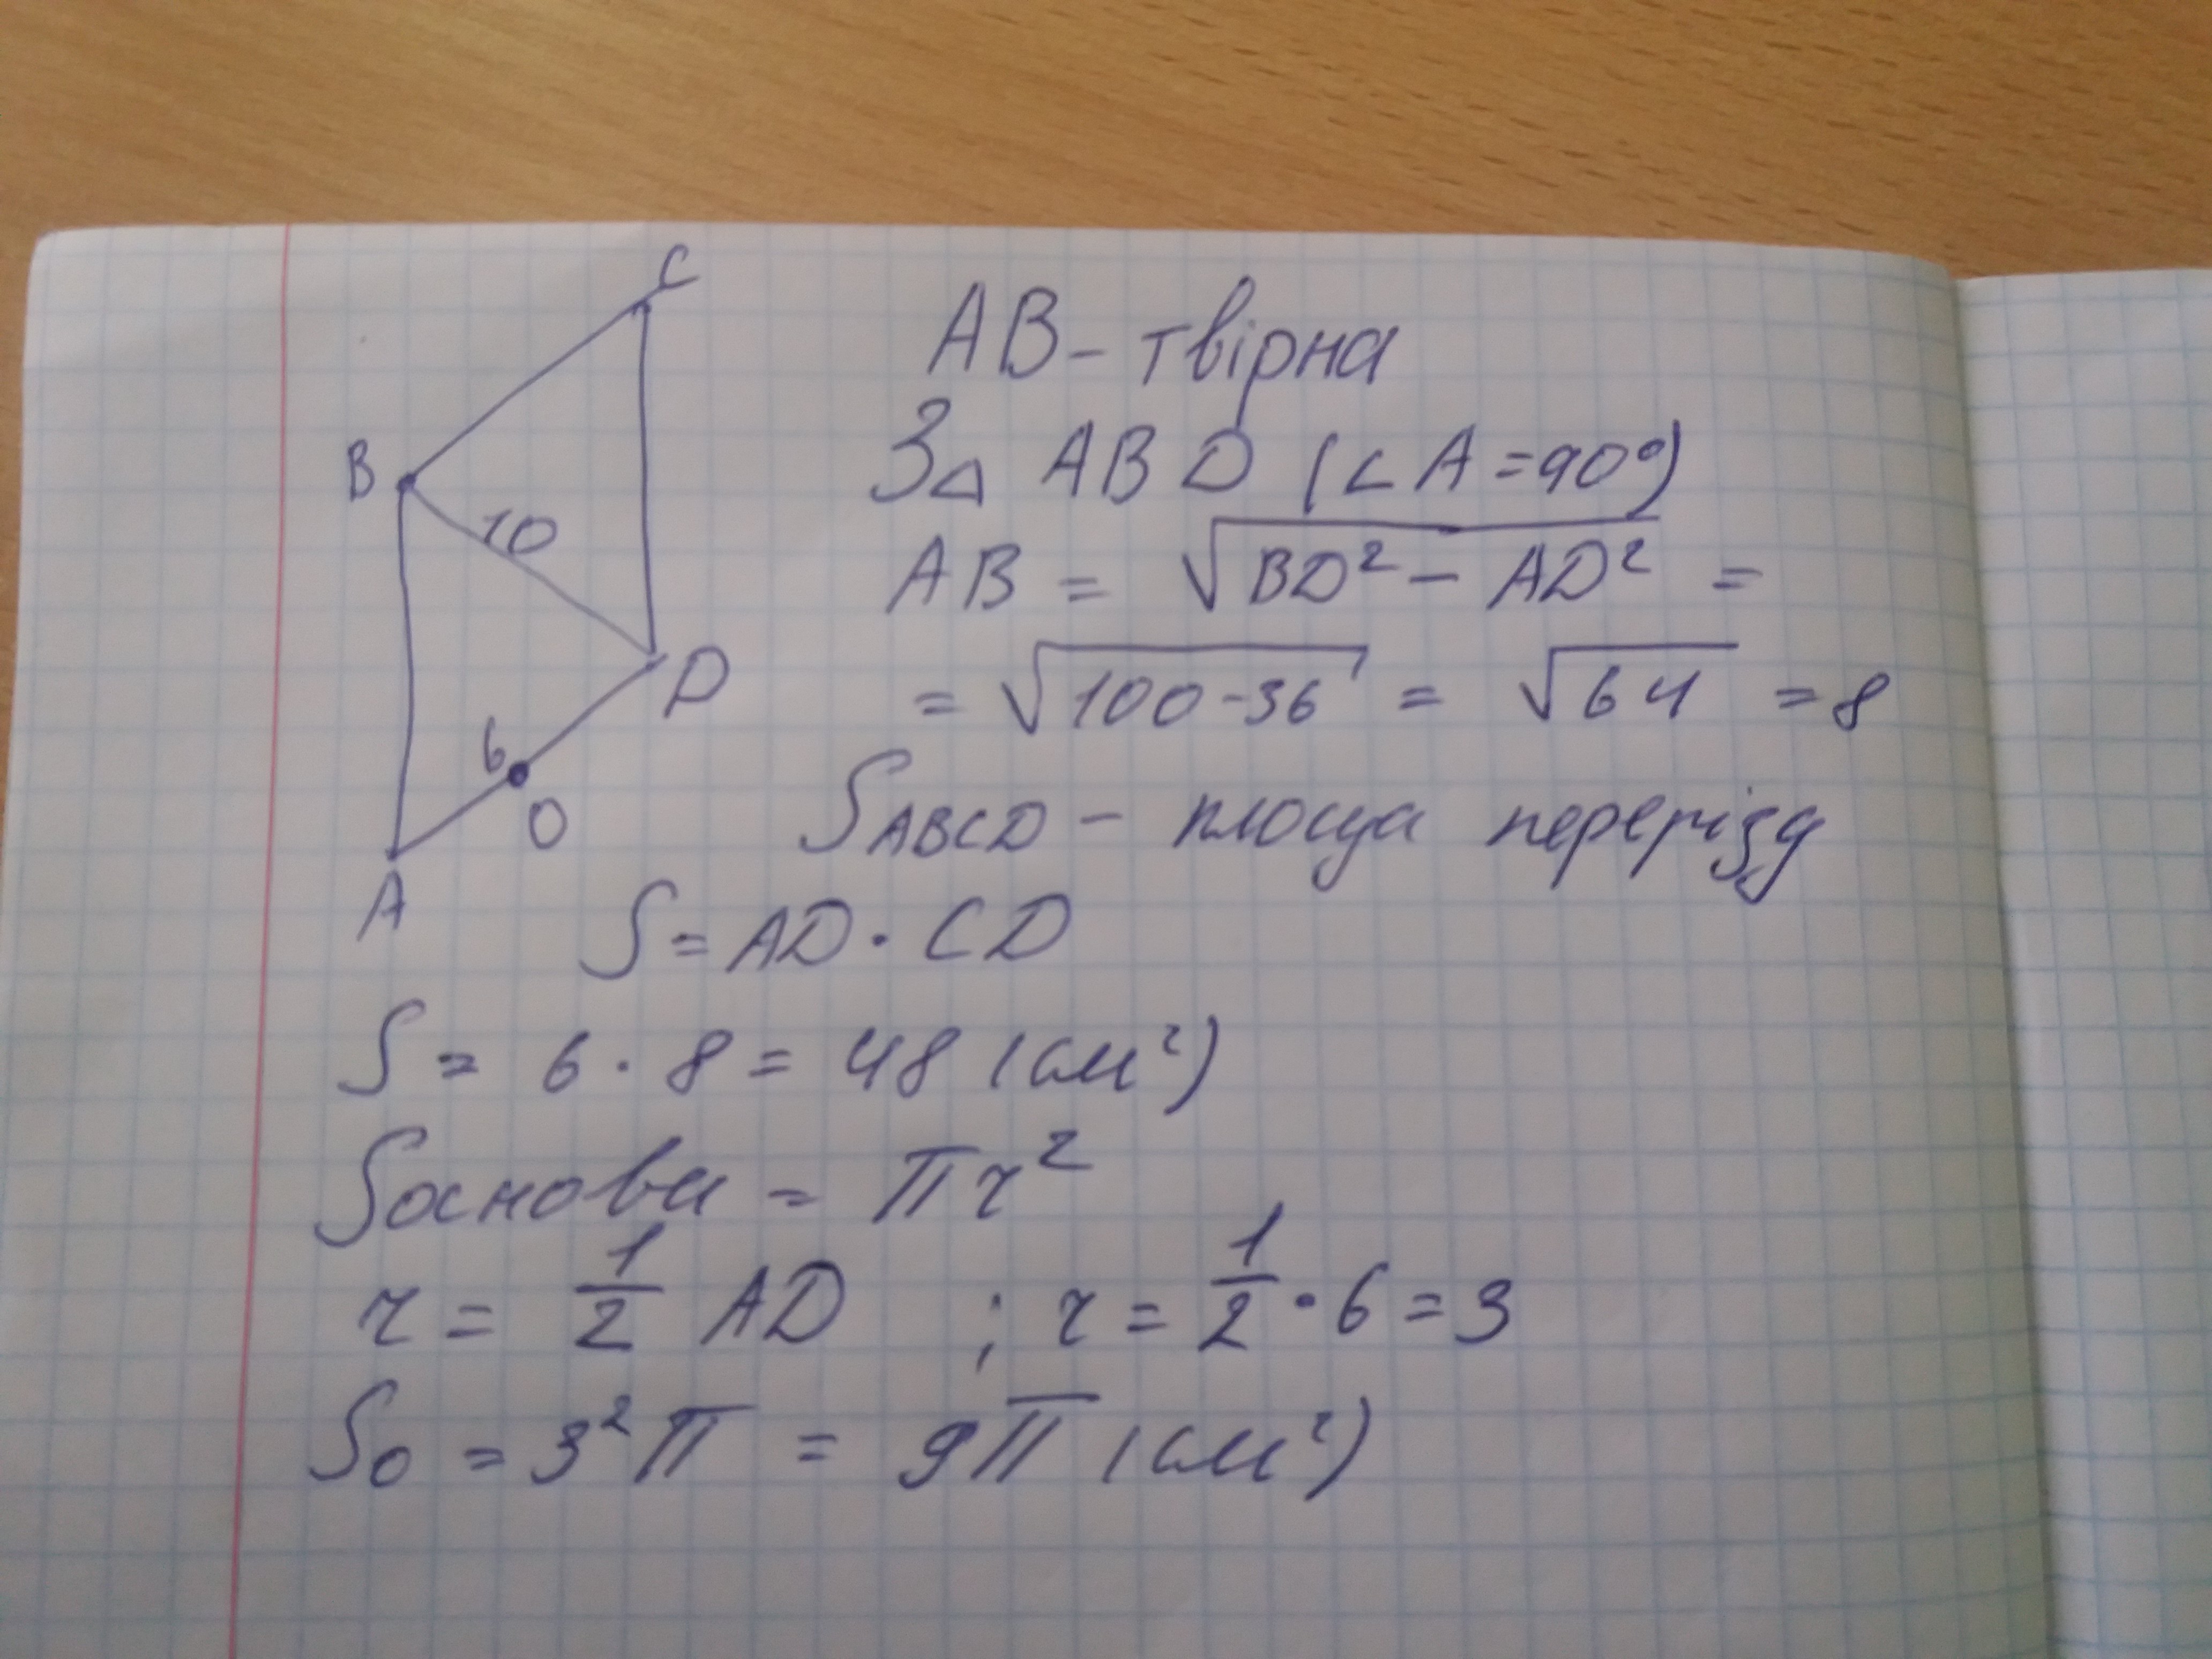 C
B
10
D
6
O
A
AB - твірна
З △ ABD (∠A = 90°)
AB = √BD² - AD² =
= √100-36 = √64 = 8
SABCD - площа перерізу
S = AD · CD
S = 6 · 8 = 48 (см²)
Sоснови = πr²
r = 1/2 AD ; r = 1/2 · 6 = 3
So = 3²π = 9π (см²)